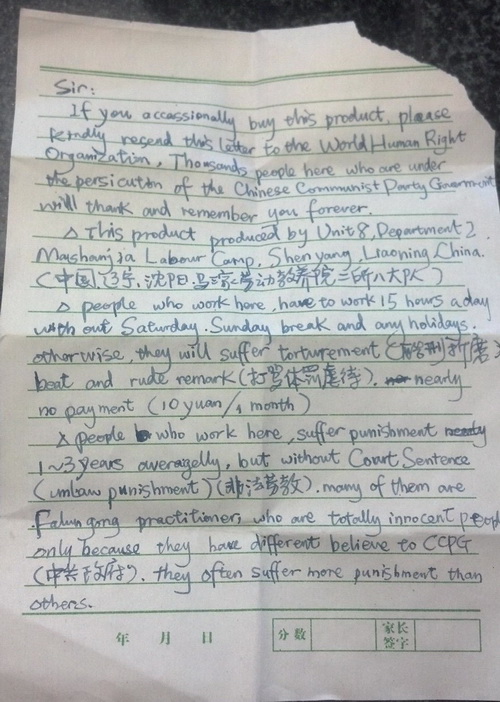 Sir:
If you occassionally buy this product, please
kindly resend this letter to the World Human Right
Organization. Thousands people here who are under
the persicution of the Chinese Communist Party Government
will thank and remember you forever.
This product produced by Unit 8, Department 2,
Mashanjia Labour Camp, Shenyang, Liaoning, China.
(中国,辽宁,沈阳,马三家劳动教养院二所八大队)
people who work here, have to work 15 hours a day
with out Saturday, Sunday break and any holidays.
otherwise, they will suffer torturement (酷刑折磨)
beat and rude remark (打骂体罚虐待). nearly
no payment (10 yuan/1 month)
people who work here, suffer punishment
1~3 years averagelly, but without Court Sentence
(unlaw punishment) (非法劳教). many of them are
Falun gong practitioner, who are totally innocent people
only because they have different believe to CCPG
(中共政府). they often suffer more punishment than
others.
年 月 日 分数 家长签字